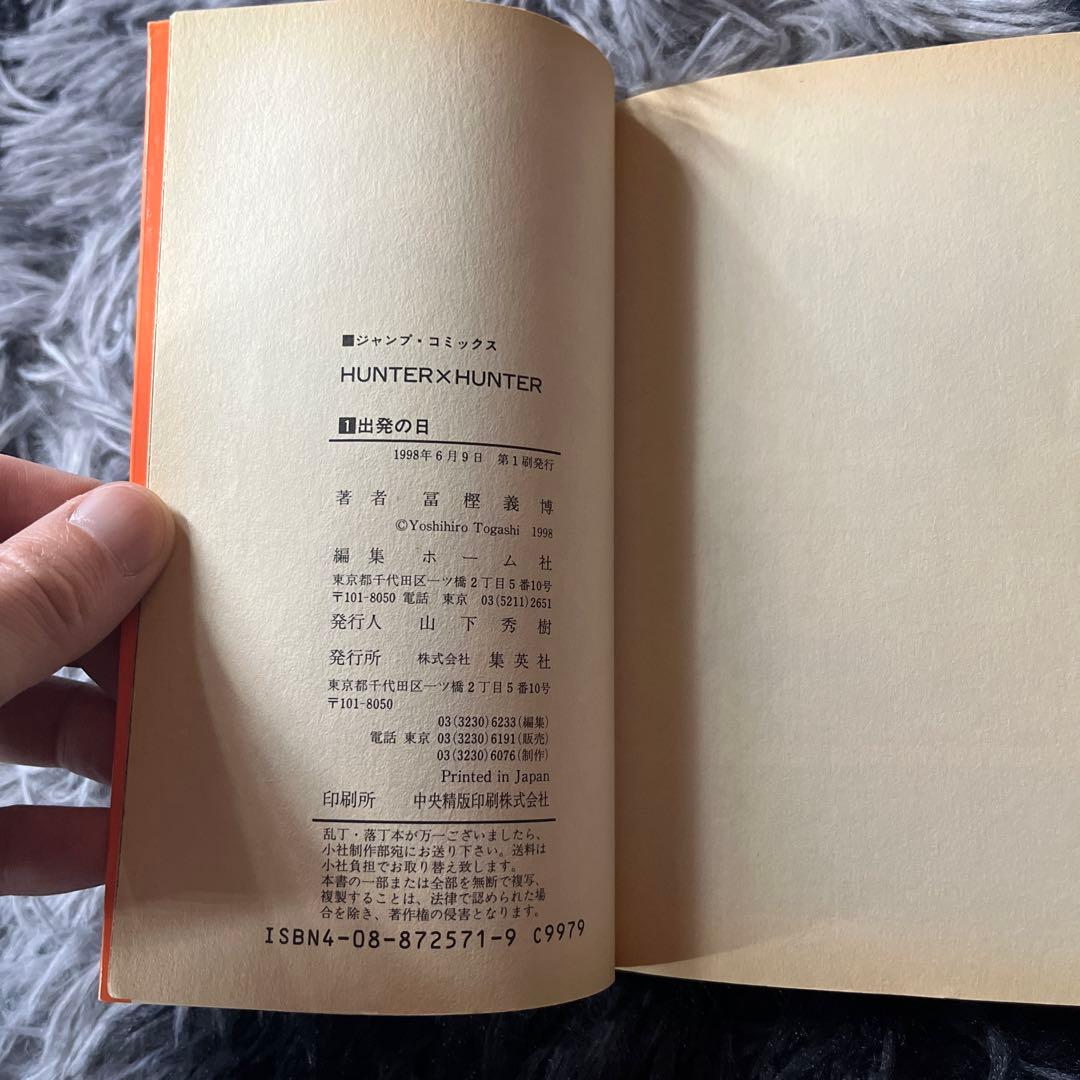 ■ジャンプ・コミックス
HUNTER×HUNTER
1出発の日
1998年6月9日 第1刷発行
著者 冨樫義博
©Yoshihiro Togashi 1998
編集 ホーム社
東京都千代田区一ツ橋2丁目5番10号
〒101-8050 電話 東京 03(5211)2651
発行人 山下秀樹
発行所 株式会社 集英社
東京都千代田区一ツ橋2丁目5番10号
〒101-8050
03(3230)6233(編集)
電話 東京 03(3230)6191(販売)
03(3230)6076(制作)
Printed in Japan
印刷所 中央精版印刷株式会社
乱丁・落丁本が万一ございましたら、
小社制作部宛にお送り下さい。送料は
小社負担でお取り替え致します。
本書の一部または全部を無断で複写、
複製することは、法律で認められた場
合を除き、著作権の侵害となります。
ISBN4-08-872571-9 C9979